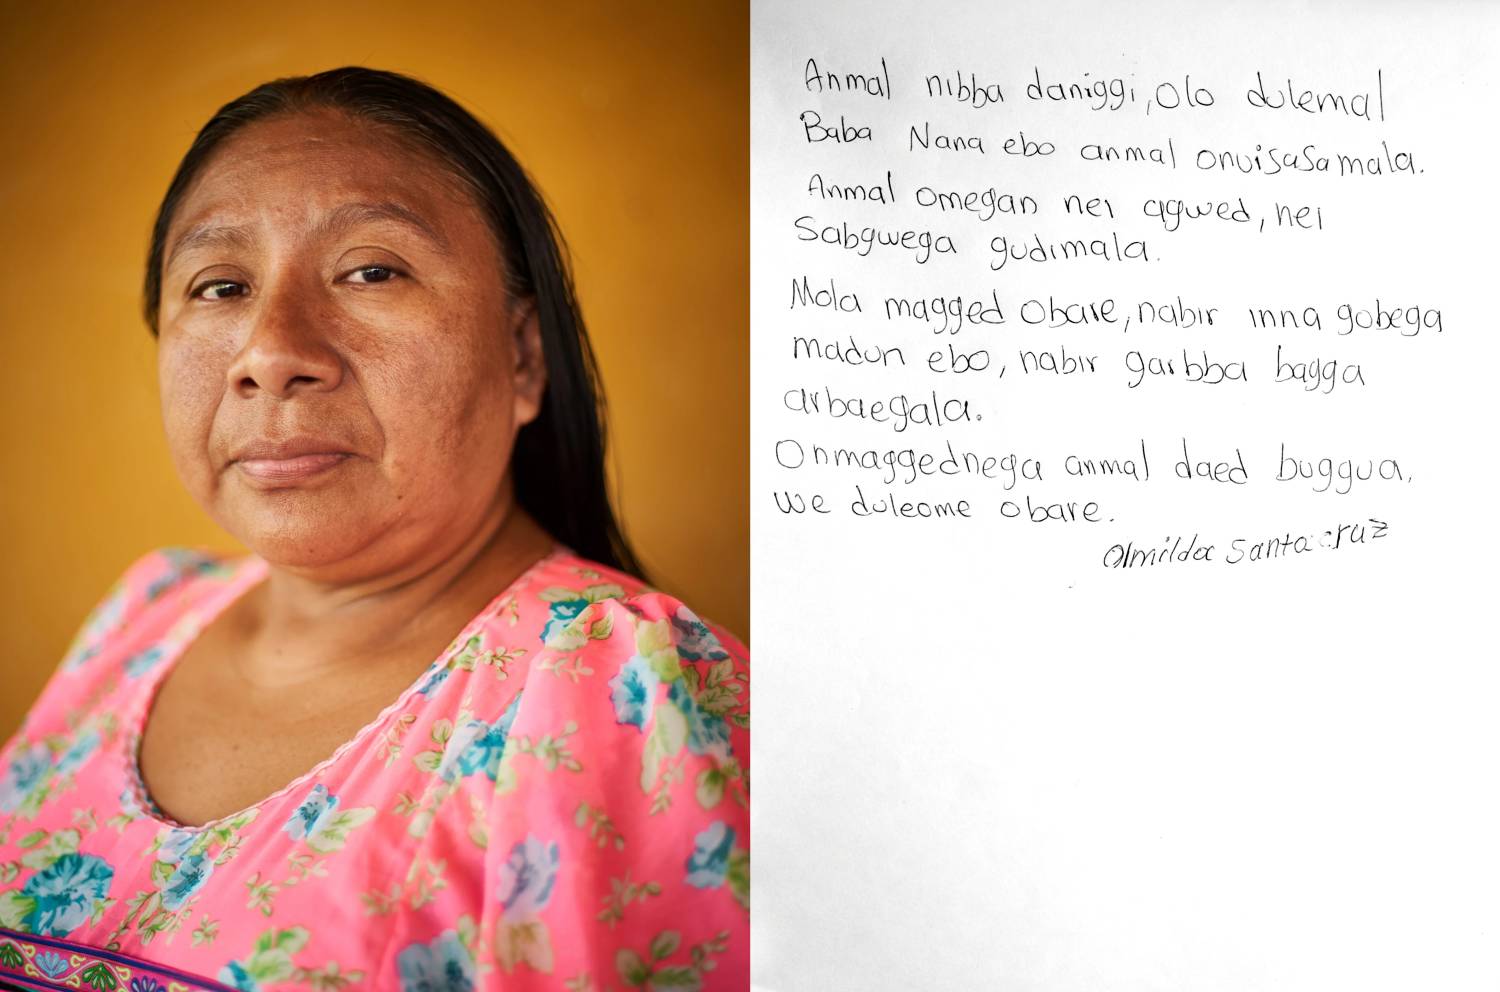 Anmal nibba daniggi, olo dulemal
Baba Nana ebo anmal onuisasamala.
Anmal omegan nei agwed, nei
Sabgwega gudimala.
Mola magged obare, nabir inna gobega
madun ebo, nabir garbba bagga
arbaegala.
Onmaggednega anmal daed buggua,
we duleome obare.
Olmilda Santacruz